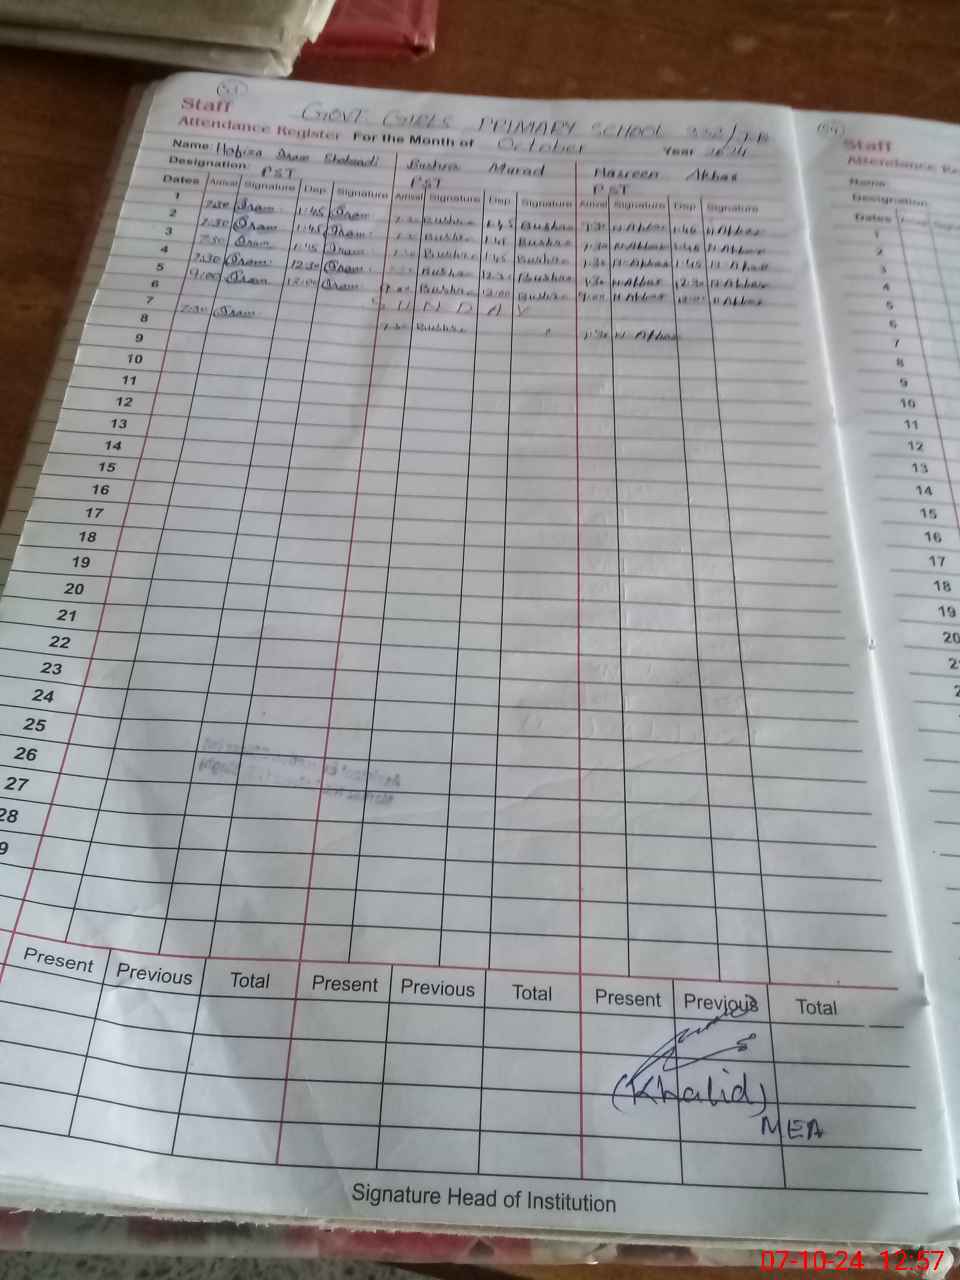 Staff
GOVT GIRLS PRIMARY SCHOOL
Attendance Register For the Month of October Year 2024
Name: Bushra Murad Nasreen Akhtar
Designation: PST PST PST
Dates Arrival Signature Dep Signature Arrival Signature Dep Signature Arrival Signature Dep Signature
1 7:30 Iram 1:45 Iram Bushra 1:45 Bushra N Akhtar N Akhtar
2 7:30 Iram 1:45 Iram Bushra 1:45 Bushra 7:30 N Akhtar N Akhtar
3 7:30 Iram 1:45 Iram Bushra 1:45 Bushra 7:30 N Akhtar 1:45 N Akhtar
4 7:30 Iram 12:30 Iram Bushra 12:30 Bushra 7:30 N Akhtar 12:30 N Akhtar
5 9:00 Iram 12:00 Iram Bushra 12:00 Bushra 9:00 N Akhtar 12:00 N Akhtar
6 S U N D A Y
7 7:30 Iram 7:30 Bushra 7:30 N Akhtar
8
9
10
11
12
13
14
15
16
17
18
19
20
21
22
23
24
25
26
27
28
9
Present Previous Total Present Previous Total Present Previous Total
(Khalid)
MEA
Signature Head of Institution
Staff
Attendance Re
Name
Designation
Dates
1
2
3
4
5
6
7
8
9
10
11
12
13
14
15
16
17
18
19
20
07-10-24 12:57